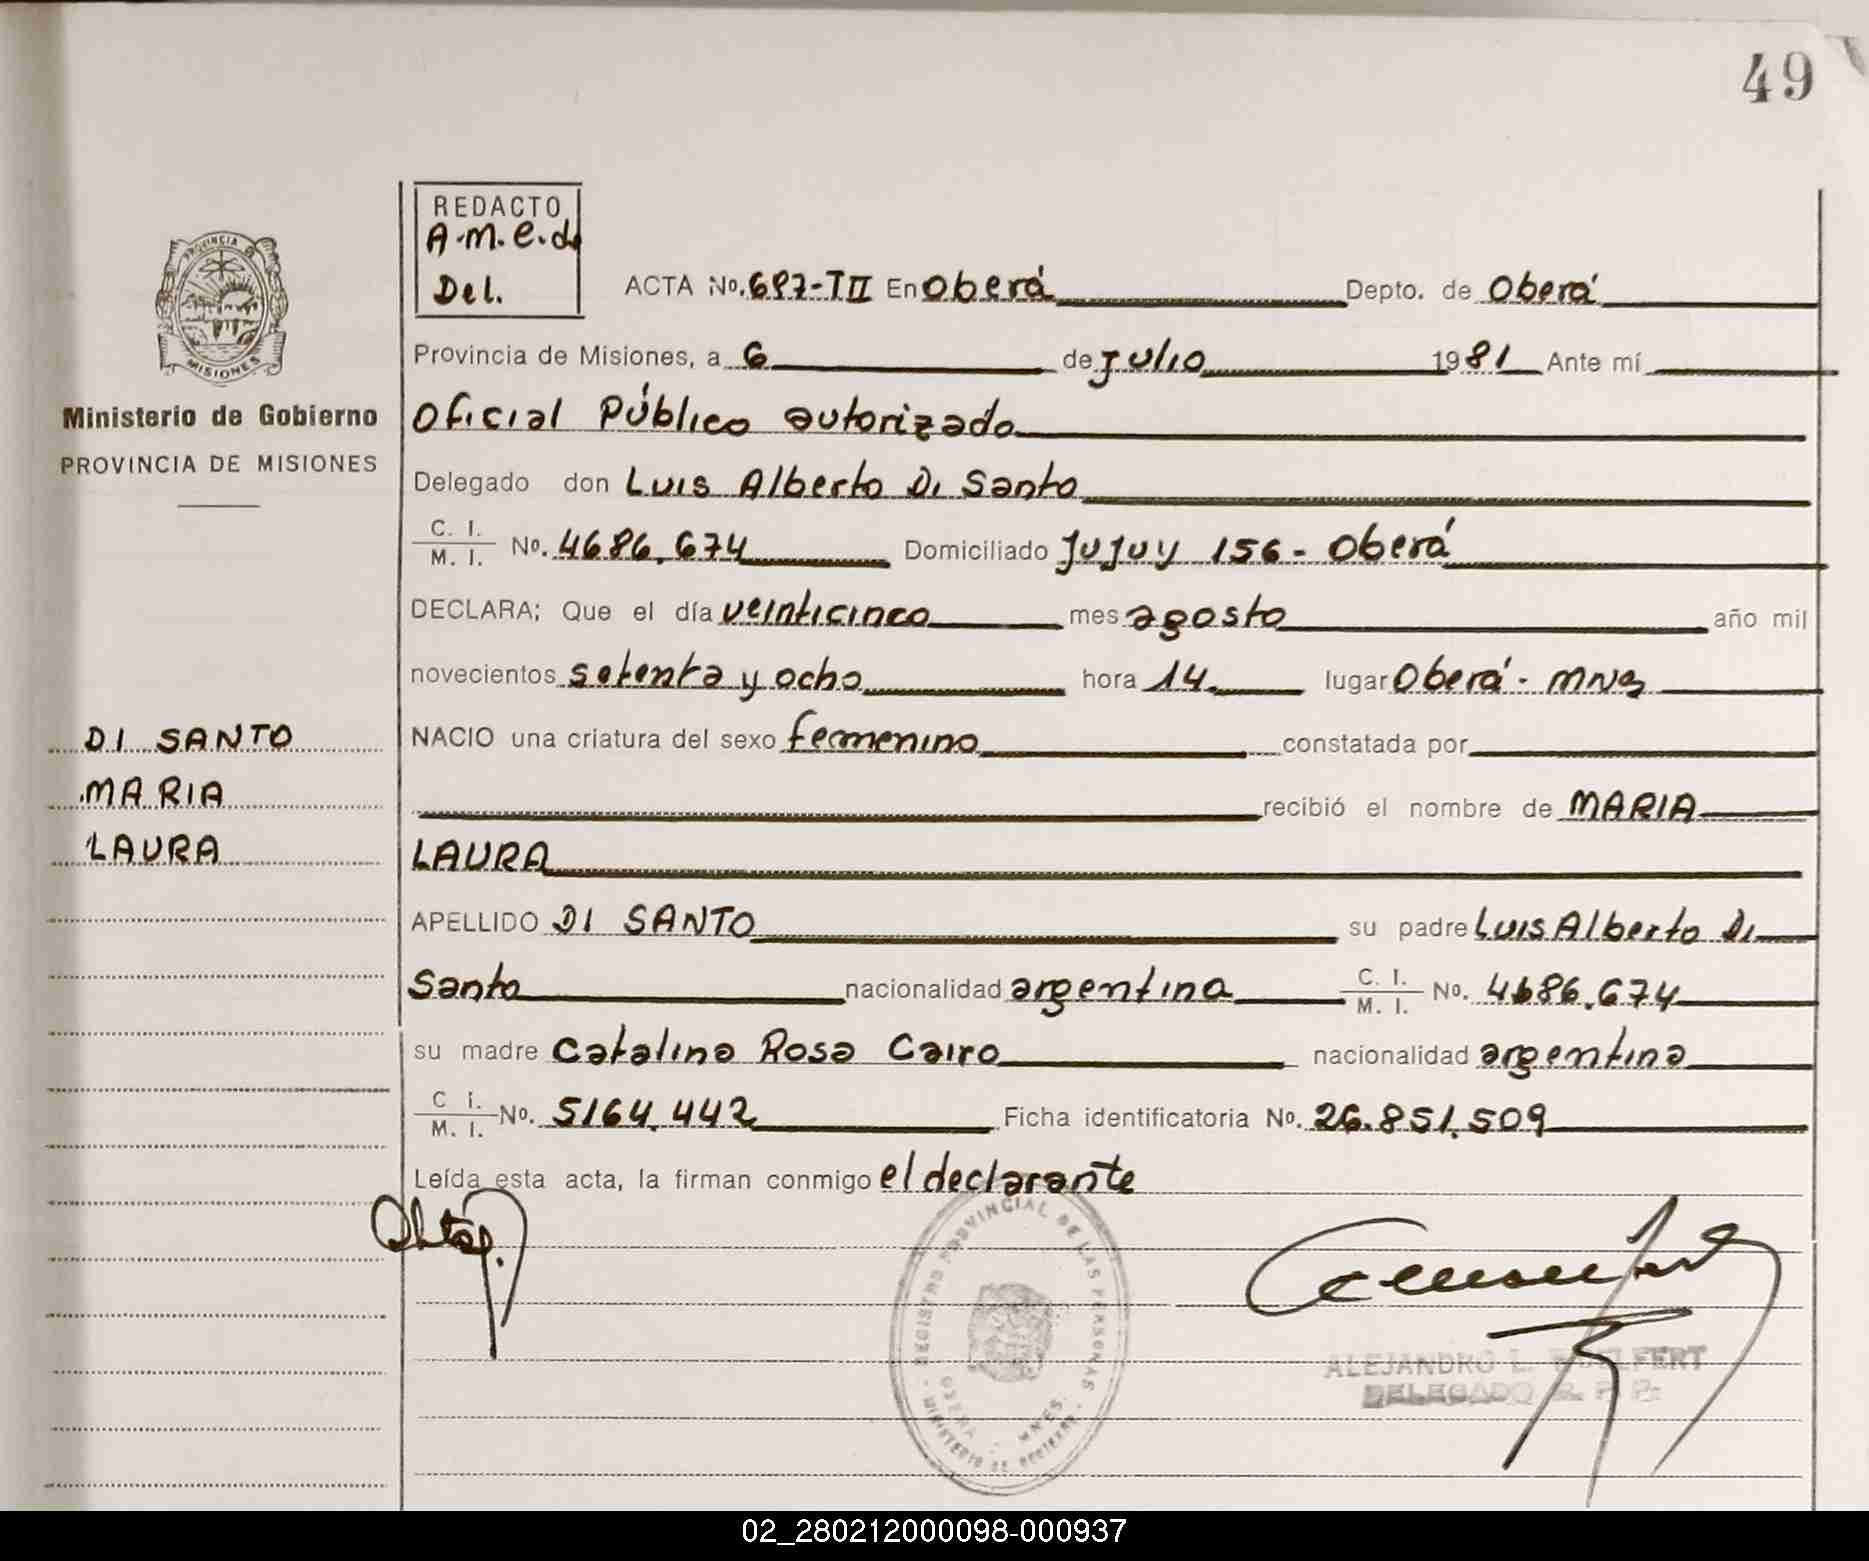 49
REDACTO
A.m.e.d.
Del.
ACTA No. 687-TII En Oberá Depto. de Oberá
Provincia de Misiones, a 6 de Julio 1981 Ante mí
Oficial Público autorizado
Delegado don Luis Alberto Di Santo
C. I. / M. I. No. 4686.674 Domiciliado Jujuy 156 - Oberá
DECLARA; Que el día veinticinco mes agosto año mil
novecientos setenta y ocho hora 14. lugar Oberá - Mnes
NACIO una criatura del sexo femenino constatada por
recibió el nombre de MARIA
LAURA
APELLIDO DI SANTO su padre Luis Alberto Di
Santo nacionalidad argentina C. I. / M. I. No. 4686.674
su madre Catalina Rosa Cairo nacionalidad argentina
C I. / M. I. No. 5164.442 Ficha identificatoria No. 26.851.509
Leída esta acta, la firman conmigo el declarante
PROVINCIA DE
MISIONES
Ministerio de Gobierno
PROVINCIA DE MISIONES
DI SANTO
MARIA
LAURA
REGISTRO PROVINCIAL DE LAS PERSONAS
OBERA - MNES.
MINISTERIO DE GOBIERNO
ALEJANDRO L.
DELEGADO R. P. P.
02_280212000098-000937